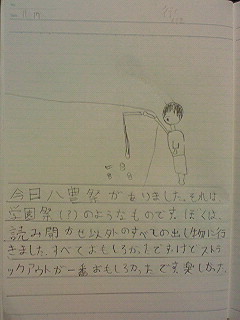 今日八雲祭がありました。それは、
学園祭(?)のようなものです。ぼくは、
読み聞かせ以外のすべての出し物に行
きました。すべておもしろかったですけどストラ
ックアウトが一番おもしろかったです。楽しかった。